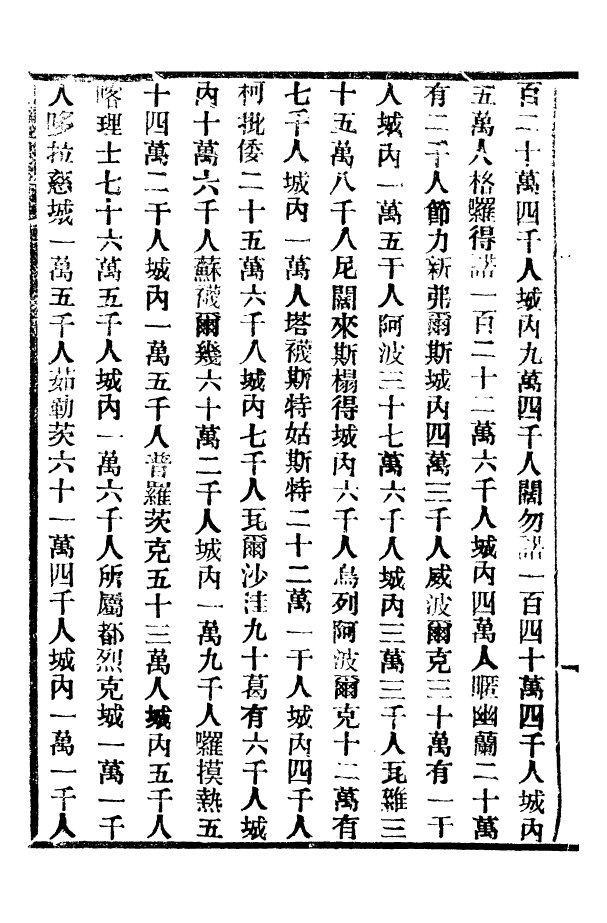 百二十萬四千人城內九萬四千人闊勿諾一百四十萬四千人城內
五萬人格羅得諾一百二十二萬六千人城內四萬人䁥幽蘭二十萬
有二千人節力新弗爾斯城內四萬三千人威波爾克三十萬有一千
人城內一萬五千人阿波三十七萬六千人城內三萬三千人瓦雖三
十五萬八千人尼闊來斯榻得城內六千人烏列阿波爾克十二萬有
七千人城內一萬人塔襪斯特姑斯特二十二萬一千人城內四千人
柯批倭二十五萬六千人城內七千人瓦爾沙洼九十葛有六千人城
內十萬六千人蘇襪爾幾六十萬二千人城內一萬九千人囉摸熱五
十四萬二千人城內一萬五千人普羅茨克五十三萬人城內五千人
喀理士七十六萬五千人城內一萬六千人所屬都烈克城一萬一千
人哆拉慈城一萬五千人茹勒茨六十一萬四千人城內一萬一千人